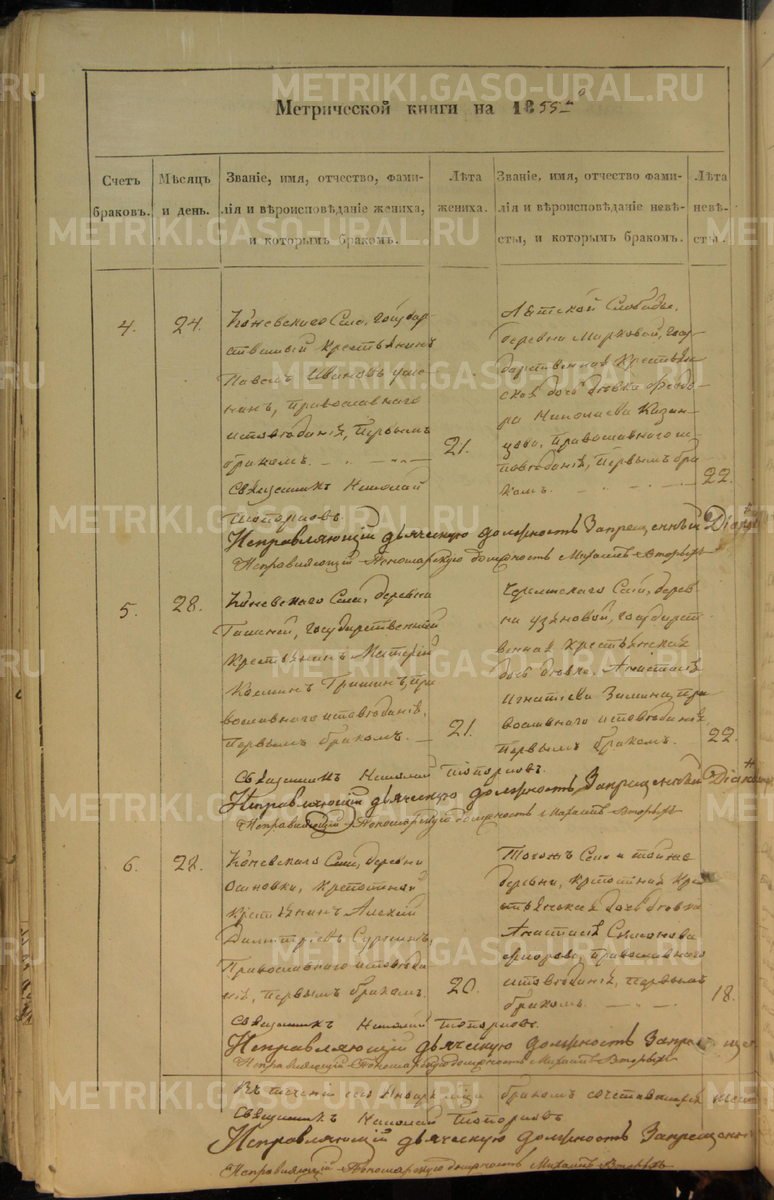 METRIKI.GASO-URAL.RU
Метрической книги на 1855го
Счетъ браковъ.
Мѣсяцъ и день.
Званіе, имя, отчество, фами-
лія и вѣроисповѣданіе жениха,
и которымъ бракомъ.
Лѣта жениха.
Званіе, имя, отчество фами-
лія и вѣроисповѣданіе невѣ-
сты, и которымъ бракомъ.
Лѣта невѣ-
сты.
4.
24.
Коневскаго Села, Государ-
ственный крестьянинъ
Павелъ Ивановъ
православнаго
исповѣданія, первымъ
бракомъ.
21.
Священникъ Николай
Топорковъ
Слободы,
деревни Мурзовой, госу-
дарственная крестьян-
ская дочь дѣвка Ѳеодо-
ра Николаева Казан-
цова, православнаго ис-
повѣданія, первымъ бра-
комъ.
22.
Исправляющій дьяческую должность Запрещенный Діаконъ
Исправляющій Пономарскую должность Михаилъ Вторыхъ
5.
28.
Коневскаго Села, деревни
Государственный
крестьянинъ
Козминъ Гришинъ, пра-
вославнаго исповѣданія,
первымъ бракомъ.
21.
Села, дерев-
ни Узяновой, государст-
венная крестьянская
дочь дѣвка, Анастасія
Игнатіева Зимина, пра-
вославнаго исповѣданія,
первымъ бракомъ.
22.
Священникъ Николай Топорковъ.
Исправляющій дьяческую должность Запрещенный Діаконъ
Исправляющій Пономарскую должность Михаилъ Вторыхъ
6.
28.
Коневскаго Села, деревни
Осиновки, крепостной
крестьянинъ Алексій
Димитріевъ
Православнаго исповѣда-
нія, первымъ бракомъ.
20.
Тогожъ Села и тойже
деревни, крепостная кре-
стьянская дочь дѣвка
Анастасія Симонова
православнаго
исповѣданія, первымъ
бракомъ.
18.
Священникъ Николай Топорковъ.
Исправляющій дьяческую должность
Исправляющій Пономарскую должность Михаилъ Вторыхъ
Въ теченіи сего Января м-ца бракомъ сочетавшихся
Священникъ Николай Топорковъ
Исправляющій дьяческую должность
Исправляющій Пономарскую должность Михаилъ Вторыхъ